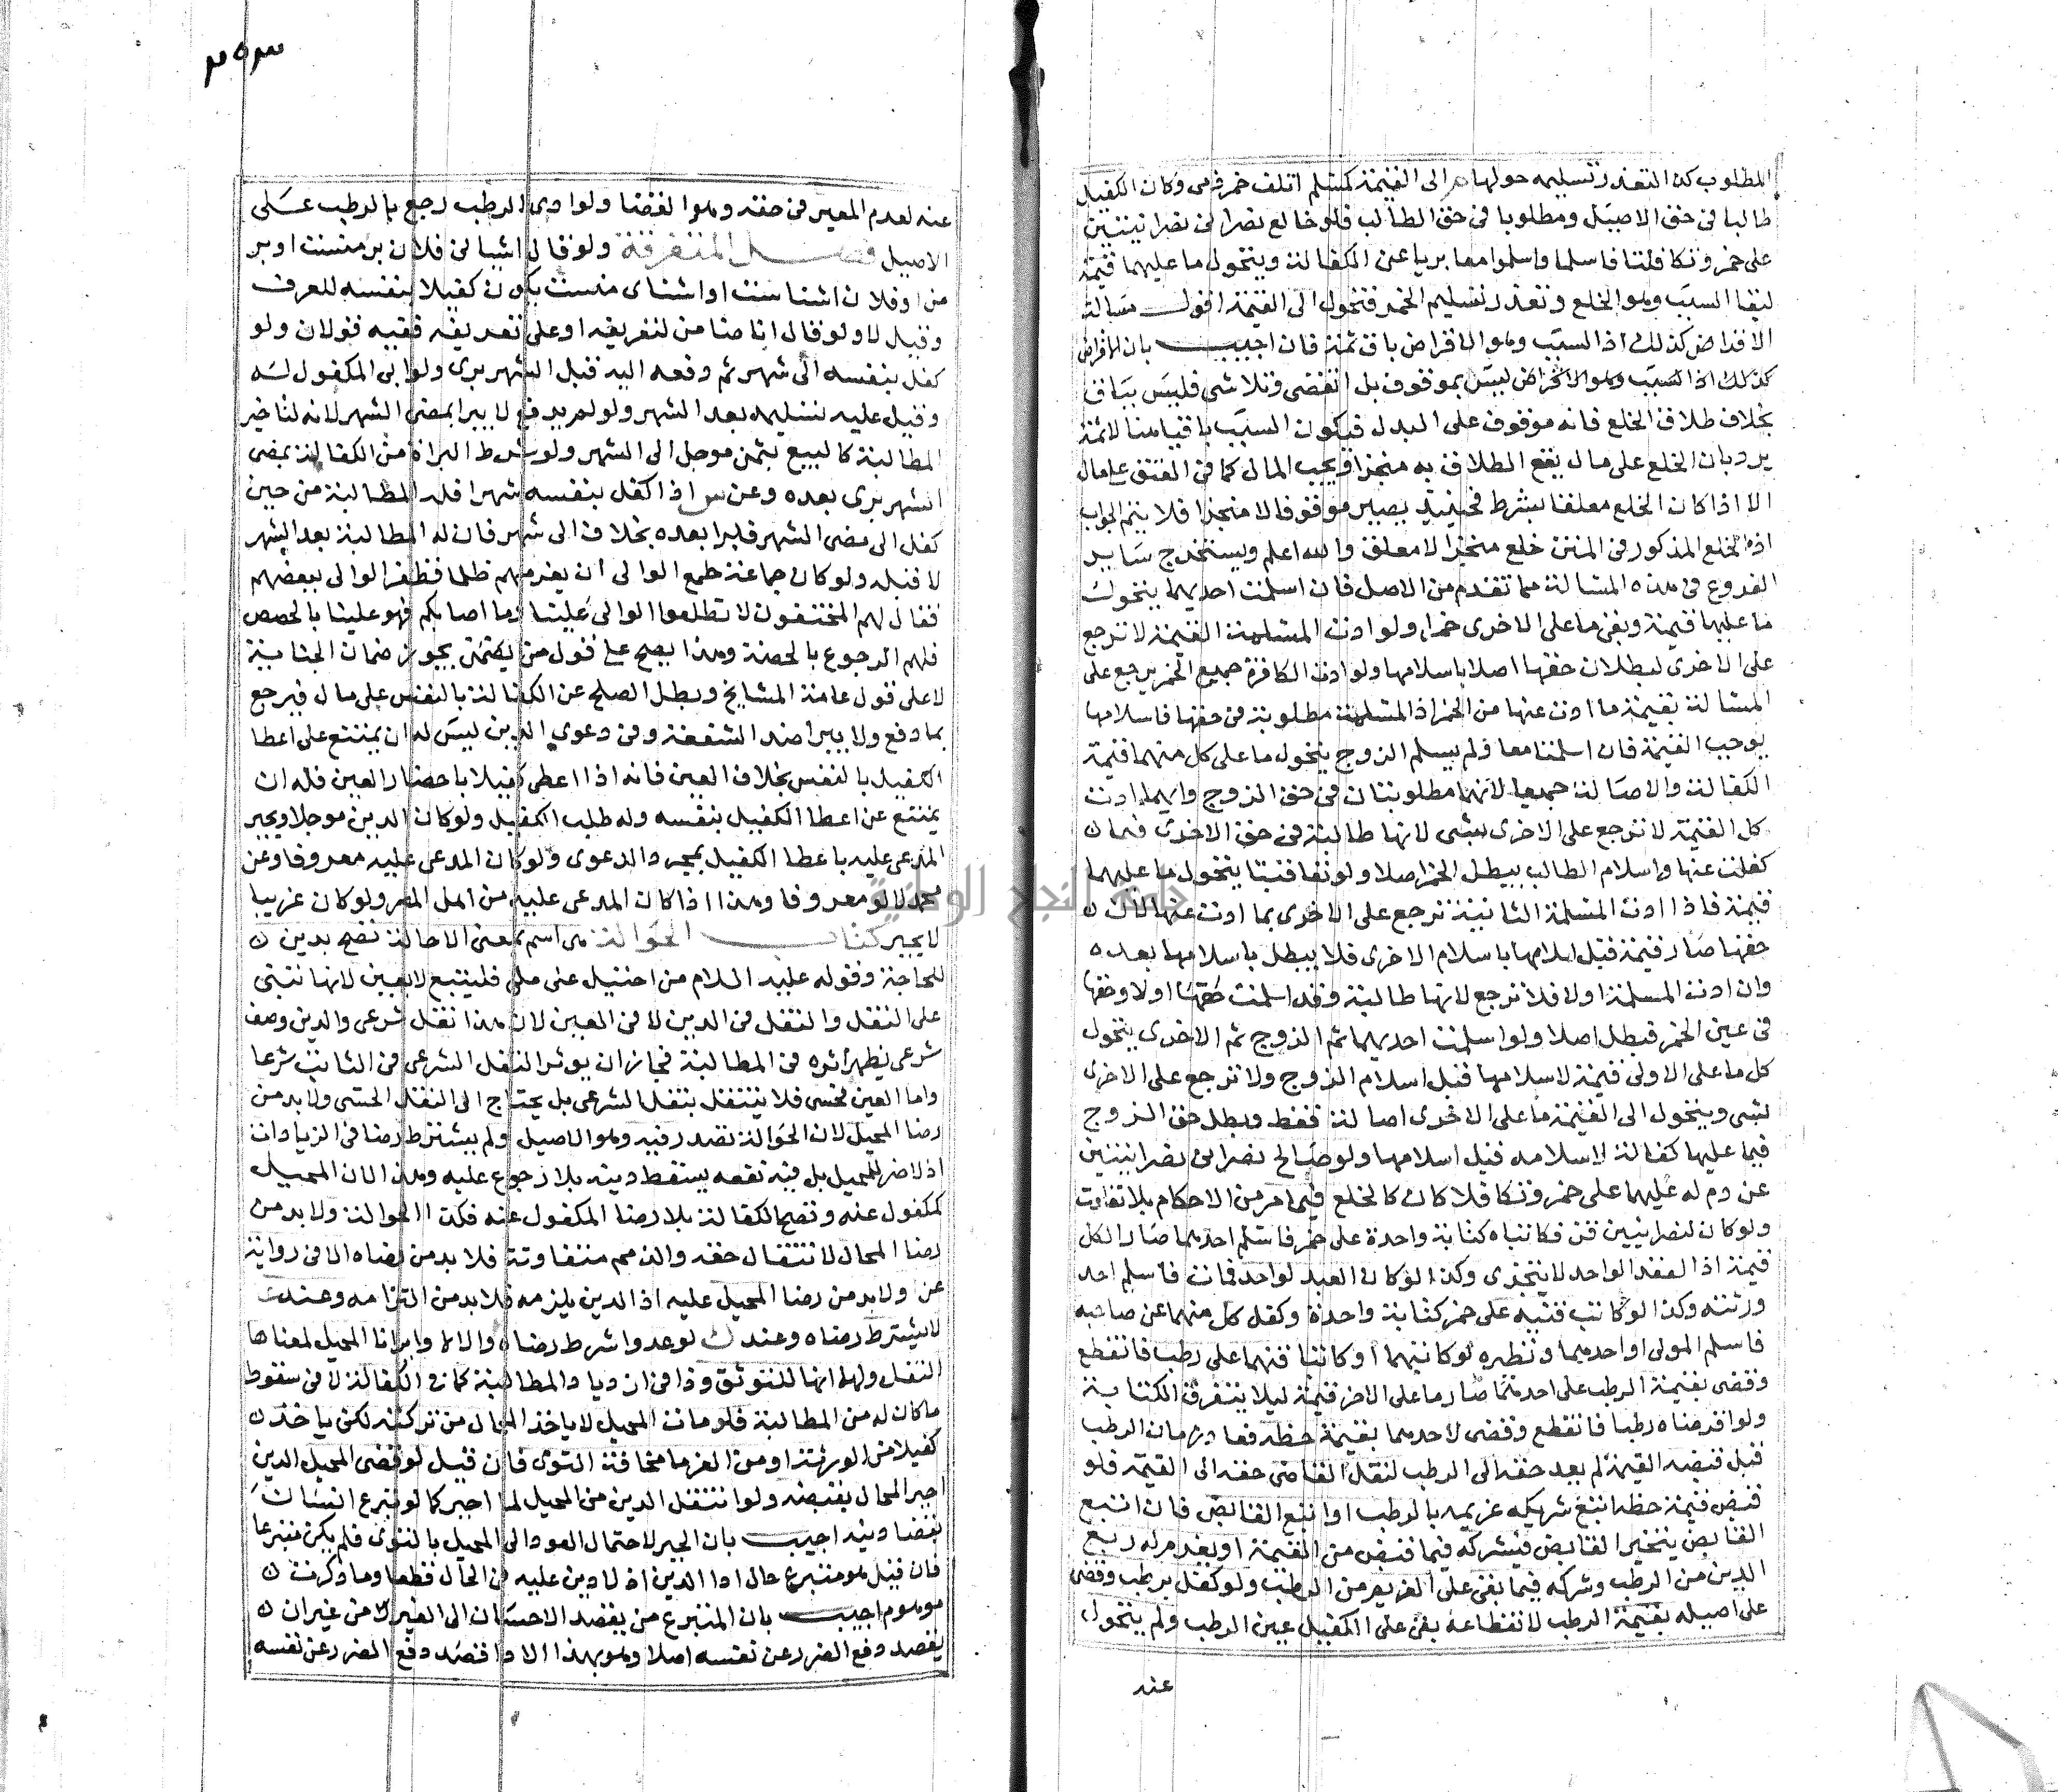 المطلوب كذا لتعذر تسليمه حولها الى القيمة كمسلم اتلف خمر ذمى وكان الكفيل
طالبا فى حق الاصيل ومطلوبا فى حق الطالب فلو خالع نصرانى نصرانيتين
على خمر وتكافلتا فاسلما واسلموا معا بريا عن الكفالة ويتحول ما عليهما قيمة
لبقا السبب وهو الخلع وتعذر تسليم الخمر فتحول الى القيمة اقول مسالة
الاقراض كذلك اذ السبب وهو الاقراض باق ثمة فان اجيب بان الاقراض
كذلك اذ السبب وهو الاقراض ليس بموقوف بل انقضى وتلاشى فليس بباق
بخلاف طلاق الخلع فانه موقوف على البدل فيكون السبب باقيا هنا لا ثمة
يرد بان الخلع على مال يقع الطلاق به منجزا ويجب المال كما فى العتق على مال
الا اذا كان الخلع معلقا بشرط فحينئيذ يصير موقوفا لا منجزا فلا يتم الجواب
اذ الخلع المذكور فى المتن خلع منجز لا معلق والله اعلم ويستخرج ساير
الفروع فى هذه المسالة مما تقدم من الاصل فان اسلمت احديهما يتحول
ما عليها قيمة وبقى ما على الاخرى خمرا ولو ادت المسلمة القيمة لا ترجع
على الاخرى لبطلان حقها اصلا باسلامها ولو ادت الكافرة جميع الخمر يرجع على
المسالة بقيمة ما ادت عنها من الخمر اذ المسلمة مطلوبة فى حقها فاسلامها
يوجب القيمة فان اسلمتا معا ولم يسلم الزوج يتحول ما على كل منهما قيمة
الكفالة والاصالة جميعا لانهما مطلوبتان فى حق الزوج وايهما ادت
كل القيمة لا ترجع على الاخرى بشى لانها طالبة فى حق الاخرى فيما
كفلت عنها واسلام الطالب يبطل الخمر اصلا ولو تعاقبتا يتحول ما عليهما
قيمة فاذا ادت المسلمة الثانية ترجع على الاخرى بما ادت عنها لان
حقها صار قيمة قبل اسلامها باسلام الاخرى فلا يبطل باسلامها بعده
وان ادت المسلمة اولا فلا ترجع لانها طالبة وقد اسلمت حقها اولا وحقها
فى عين الخمر فبطل اصلا ولو اسلمت احديهما ثم الزوج ثم الاخرى يتحول
كل ما على الاولى قيمة لاسلامها قبل اسلام الزوج ولا ترجع على الاخرى
بشى ويتحول الى القيمة ما على الاخرى اصالة فقط وبطل حق الزوج
فيما عليها كفالة لاسلامه قبل اسلامها ولو صالح نصرانى نصرانيتين
عن دم له عليهما على خمر وتكافلا كان كالخلع فيما مر من الاحكام بلا تفاوت
ولو كان لنصرانيين قن فكاتباه كتابة واحدة على خمر فاسلم احدهما صار الكل
قيمة اذ العقد الواحد لا يتجزى وكذا لو كان العبد لواحد فمات فاسلم احد
ورثته وكذا لو كاتب قنيه على خمر كتابة واحدة وكفل كل منهما عن صاحبه
فاسلم المولى او احدهما ونظيره لو كاتبهما او كاتبا قنهما على رطب فانقطع
وقضى بقيمة الرطب على احدهما صار ما على الاخر قيمة ليلا يتفرق الكتابة
ولو اقرضاه رطبا فانقطع وقضى لاحدهما بقيمة حظه فعاد زمان الرطب
قبل قبضه القيمة لم يعد حقه الى الرطب لنقل القاضى حقه الى القيمة فلو
قبض قيمة حظه اتبع شريكه غريمه بالرطب او اتبع القابض فان اتبع
القابض يتخير القابض فيشركه فيما قبض من القيمة او يغرم له ربع
الدين من الرطب وشركه فيما بقى على الغريم من الرطب ولو كفل برطب وقضى
على اصيله بقيمة الرطب لانقطاعه بقى على الكفيل عين الرطب ولم يتحول
عنه
٢٥٣
عنه لعدم المغير فى حقه وهو القضا ولو ادى الرطب رجع بالرطب على
الاصيل فصل المتفرقة ولو قال اشنائى فلان بر منست او بر
من او فلان اشناست او اشناى منست يكون كفيلا بنفسه للعرف
وقيل لا ولو قال انا ضامن لتعريفه او على تعريفه ففيه قولان ولو
كفل بنفسه الى شهر ثم دفعه اليه قبل الشهر برى ولو ابى المكفول له
وقيل عليه تسليمه بعد الشهر ولو لم يدفع لا يبرا بمضى الشهر لانه لتاخير
المطالبة كالبيع بثمن موجل الى الشهر ولو شرط البراة من الكفالة بمضى
الشهر برى بعده وعن س اذا كفل بنفسه شهرا فله المطالبة من حين
كفل الى مضى الشهر فيبرا بعده بخلاف الى شهر فان له المطالبة بعد الشهر
لا قبله ولو كان جماعة طمع الوالى ان يغرمهم ظلما فظفر الوالى ببعضهم
فقال لهم المختفون لا تطلعوا الوالى علينا وما اصابكم فهو علينا بالحصص
فلهم الرجوع بالحصة وهذا يصح على قول من يجوز ضمان الجناية
لا على قول عامة المشايخ وبطل الصلح عن الكفالة بالنفس على مال فيرجع
بما دفع ولا يبرا ضد الشفعة وفى دعوى الدين ليس له ان يمتنع على اعطا
الكفيل بالنفس بخلاف العين فانه اذا اعطى كفيلا باحضار العين فله ان
يمتنع عن اعطا الكفيل بنفسه وله طلب الكفيل ولو كان الدين موجلا ويجبر
المدعى عليه باعطا الكفيل بمجرد الدعوى ولو كان المدعى عليه معروفا وعن
محمد لا لو معروفا وهذا اذا كان المدعى عليه من اهل المصر ولو كان غريبا
لا يجبر كتاب الحوالة هى اسم بمعنى الاحالة تصح بدين
للحاجة وقوله عليه السلام من احتيل على ملى فليتبع لا بعين لانها تبتنى
على النقل والنقل فى الدين لا فى العين لان هذا نقل شرعى والدين وصف
شرعى يظهر اثره فى المطالبة فجاز ان يوثر النقل الشرعى فى الثابت شرعا
واما العين فحسى فلا ينتقل بنقل الشرعى بل يحتاج الى النقل الحسى ولا بد من
رضا المحيل لان الحوالة تصدر فيه وهو الاصيل ولم يشترط رضا فى الزيادات
اذ لا ضر للمحيل بل فيه نفعه يسقط دينه بلا رجوع عليه وهذا لان المحيل
كمكفول عنه وتصح الكفالة بلا رضا المكفول عنه فكذا الحوالة ولا بد من
رضا المحال لانتقال حقه والذمم متفاوتة فلا بد من رضاه الا فى رواية
عن ولا بد من رضا المحيل عليه اذ الدين يلزمه فلا بد من التزامه وعند
لا يشترط رضاه وعند ك لو عدوا شرط رضاه والا لا وابرانا المحيل لمعناها
النقل ولهما انها للتوثق وذا فى ازدياد المطالبة كما فى الكفالة لا فى سقوط
ما كان له من المطالبة فلو مات المحيل لا ياخذ المحال من تركته لكن ياخذ
كفيلا من الورثة او من الغرما مخافة التوى فان قيل لو قضى المحيل الدين
اجبر المحال بقبضه ولو انتقل الدين من المحيل لما اجبر كما لو تبرع انسان
بقضا دينه اجيب بان الجبر لاحتمال العود الى المحيل بالتوى فلم يكن متبرعا
فان قيل هو متبرع حال ادا الدين اذ لا دين عليه فى الحال قطعا وما ذكرت
موهوم اجيب بان المتبرع من يقصد الاحسان الى الغير من غير ان
يقصد دفع الضرر عن نفسه اصلا وهو بهذا الادا قصد دفع الضرر عن نفسه
جامعة النجاح الوطنية